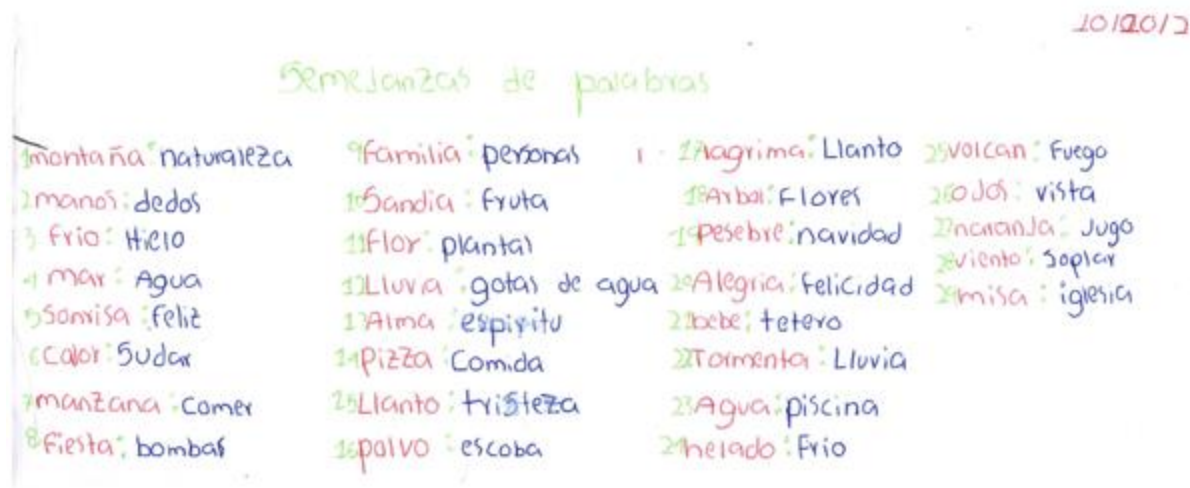 10/2012
Semejanzas de palabras
1 montaña: naturaleza
2 manos: dedos
3 frio: Hielo
4 mar: Agua
5 Sonrisa: feliz
6 Calor: Sudar
7 manzana: Comer
8 fiesta: bombas
9 familia: personas
10 Sandia: fruta
11 flor: plantas
12 Lluvia: gotas de agua
13 Alma: espiritu
14 pizza: Comida
15 Llanto: tristeza
16 polvo: escoba
17 lagrima: Llanto
18 Arbol: Flores
19 pesebre: navidad
20 Alegria: felicidad
21 bebe: tetero
22 Tormenta: Lluvia
23 Agua: piscina
24 helado: Frio
25 volcan: Fuego
26 OJOS: vista
27 naranja: Jugo
28 viento: Soplar
29 misa: iglesia